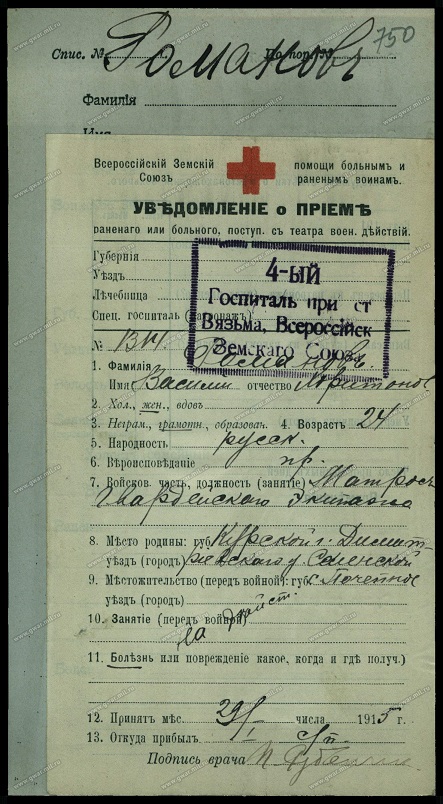 750
Спис. № Романовъ По пор. №
Фамилія
Имя
Всероссійскій Земскій Союзъ
помощи больнымъ и раненымъ воинамъ.
УВѢДОМЛЕНІЕ о ПРІЕМѢ
раненаго или больного, поступ. съ театра воен. дѣйствій.
Губернія
Уѣздъ
Лѣчебница
Спец. госпиталь
4-ЫЙ
Госпиталь при ст
Вязьма, Всероссійск
Земскаго Союза
№
1. Фамилія Романовъ
Имя Василий отчество
2. Хол., жен., вдовъ
3. Неграм., грамотн., образован. 4. Возрастъ 24
5. Народность русск.
6. Вѣроисповѣданіе пр.
7. Войсков. часть, должность (занятіе) Матросъ
Гвардейскаго Экипажа
8. Мѣсто родины: губ. Курской г. Дмит
уѣздъ (город) риевскаго у.
9. Мѣстожительство (передъ войной): губ. с. Почепное
уѣздъ (город)
10. Занятіе (передъ войной)
11. Болѣзнь или поврежденіе какое, когда и гдѣ получ.)
12. Принятъ мѣс. 29/I числа 1915 г.
13. Откуда прибылъ с/п
Подпись врача